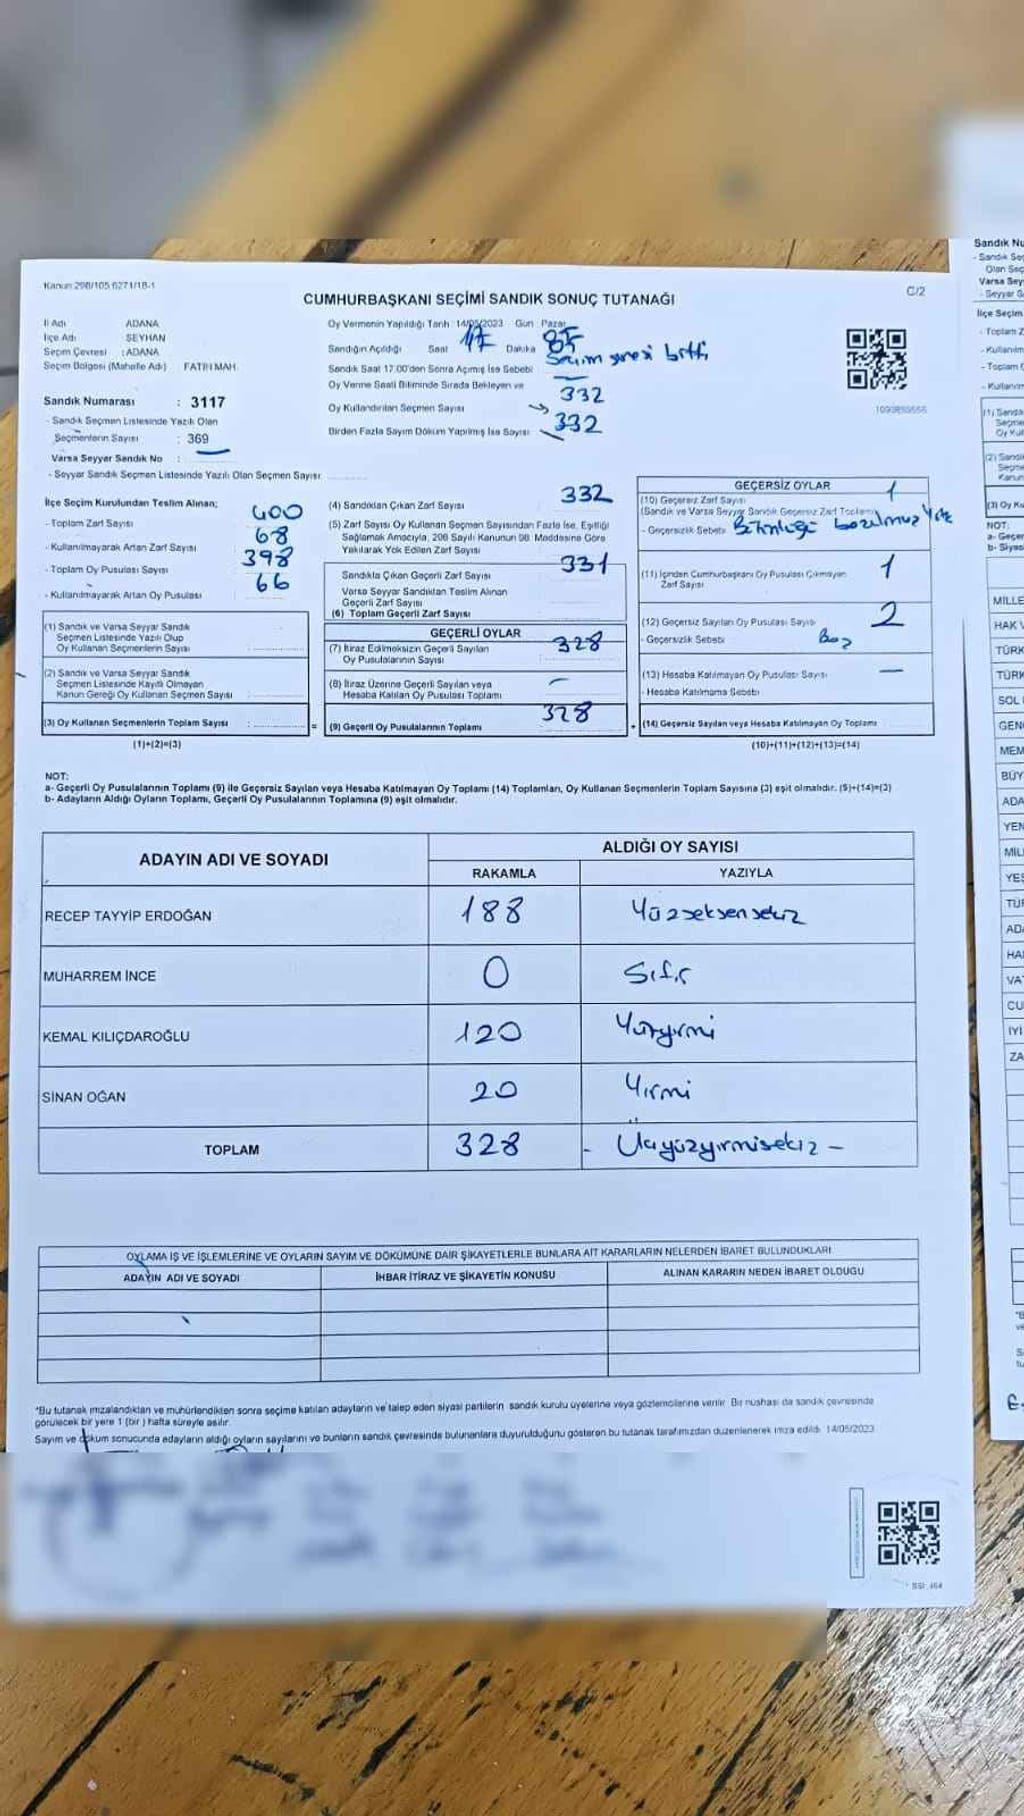 Kanun 298/105 6271/18-1
C/2
CUMHURBAŞKANI SEÇİMİ SANDIK SONUÇ TUTANAĞI
İl Adı ADANA
İlçe Adı SEYHAN
Seçim Çevresi : ADANA
Seçim Bölgesi (Mahalle Adı) FATİH MAH.
Sandık Numarası : 3117
- Sandık Seçmen Listesinde Yazılı Olan
Seçmenlerin Sayısı : 369
Varsa Seyyar Sandık No :
- Seyyar Sandık Seçmen Listesinde Yazılı Olan Seçmen Sayısı
Oy Vermenin Yapıldığı Tarih 14/05/2023 Gün Pazar
Sandığın Açıldığı Saat 17 Dakika
Sandık Saat 17.00'den Sonra Açımış İse Sebebi Seçim süresi bitti
Oy Verme Saati Bitiminde Sırada Bekleyen ve
Oy Kullandırılan Seçmen Sayısı 332
Birden Fazla Sayım Döküm Yapılmış İse Sayısı 332
1093869556
İlçe Seçim Kurulundan Teslim Alınan;
- Toplam Zarf Sayısı 400
- Kullanılmayarak Artan Zarf Sayısı 68
- Toplam Oy Pusulası Sayısı 398
- Kullanılmayarak Artan Oy Pusulası 66
(1) Sandık ve Varsa Seyyar Sandık
Seçmen Listesinde Yazılı Olup
Oy Kullanan Seçmenlerin Sayısı
(2) Sandık ve Varsa Seyyar Sandık
Seçmen Listesinde Kayıtlı Olmayan
Kanun Gereği Oy Kullanan Seçmen Sayısı
(3) Oy Kullanan Seçmenlerin Toplam Sayısı :
(1)+(2)=(3)
(4) Sandıktan Çıkan Zarf Sayısı 332
(5) Zarf Sayısı Oy Kullanan Seçmen Sayısından Fazla İse, Eşitliği
Sağlamak Amacıyla, 298 Sayılı Kanunun 98. Maddesine Göre
Yakılarak Yok Edilen Zarf Sayısı
Sandıkta Çıkan Geçerli Zarf Sayısı 331
Varsa Seyyar Sandıktan Teslim Alınan
Geçerli Zarf Sayısı
(6) Toplam Geçerli Zarf Sayısı
GEÇERLİ OYLAR
(7) İtiraz Edilmeksizin Geçerli Sayılan
Oy Pusulalarının Sayısı 328
(8) İtiraz Üzerine Geçerli Sayılan veya
Hesaba Katılan Oy Pusulası Toplamı –
= (9) Geçerli Oy Pusulalarının Toplamı 328
GEÇERSİZ OYLAR
(10) Geçersiz Zarf Sayısı 1
(Sandık ve Varsa Seyyar Sandık Geçersiz Zarf Toplamı)
- Geçersizlik Sebebi Bütünlüğü bozulmuş
(11) İçinden Cumhurbaşkanı Oy Pusulası Çıkmayan
Zarf Sayısı 1
(12) Geçersiz Sayılan Oy Pusulası Sayısı 2
- Geçersizlik Sebebi Boş
(13) Hesaba Katılmayan Oy Pusulası Sayısı —
- Hesaba Katılmama Sebebi
+ (14) Geçersiz Sayılan veya Hesaba Katılmayan Oy Toplamı
(10)+(11)+(12)+(13)=(14)
NOT:
a- Geçerli Oy Pusulalarının Toplamı (9) ile Geçersiz Sayılan veya Hesaba Katılmayan Oy Toplamı (14) Toplamları, Oy Kullanan Seçmenlerin Toplam Sayısına (3) eşit olmalıdır. (9)+(14)=(3)
b- Adayların Aldığı Oyların Toplamı, Geçerli Oy Pusulalarının Toplamına (9) eşit olmalıdır.
ADAYIN ADI VE SOYADI
ALDIĞI OY SAYISI
RAKAMLA YAZIYLA
RECEP TAYYİP ERDOĞAN 188 Yüzseksensekiz
MUHARREM İNCE 0 Sıfır
KEMAL KILIÇDAROĞLU 120 Yüzyirmi
SİNAN OĞAN 20 Yirmi
TOPLAM 328 - Üçyüzyirmisekiz -
OYLAMA İŞ VE İŞLEMLERİNE VE OYLARIN SAYIM VE DÖKÜMÜNE DAİR ŞİKAYETLERLE BUNLARA AİT KARARLARIN NELERDEN İBARET BULUNDUKLARI
ADAYIN ADI VE SOYADI İHBAR İTİRAZ VE ŞİKAYETİN KONUSU ALINAN KARARIN NEDEN İBARET OLDUĞU
*Bu tutanak imzalandıktan ve mühürlendikten sonra seçime katılan adayların ve talep eden siyasi partilerin sandık kurulu üyelerine veya gözlemcilerine verilir. Bir nüshası da sandık çevresinde
görülecek bir yere 1 (bir) hafta süreyle asılır.
Sayım ve döküm sonucunda adayların aldığı oyların sayılarını ve bunların sandık çevresinde bulunanlara duyurulduğunu gösteren bu tutanak tarafımızdan düzenlenerek imza edildi. 14/05/2023
Sandık Nu
Varsa Sey
İlçe Seçim
- Toplam Z
- Kullanılm
- Toplam
- Kullanılm
NOT:
a- Geçer
MİLLE
HAK
TÜRK
TÜRK
SOL
GEN
MEM
BÜY
ADA
YEN
MİL
YEŞ
ADA
HA
VAT
CU
İYİ
ZA